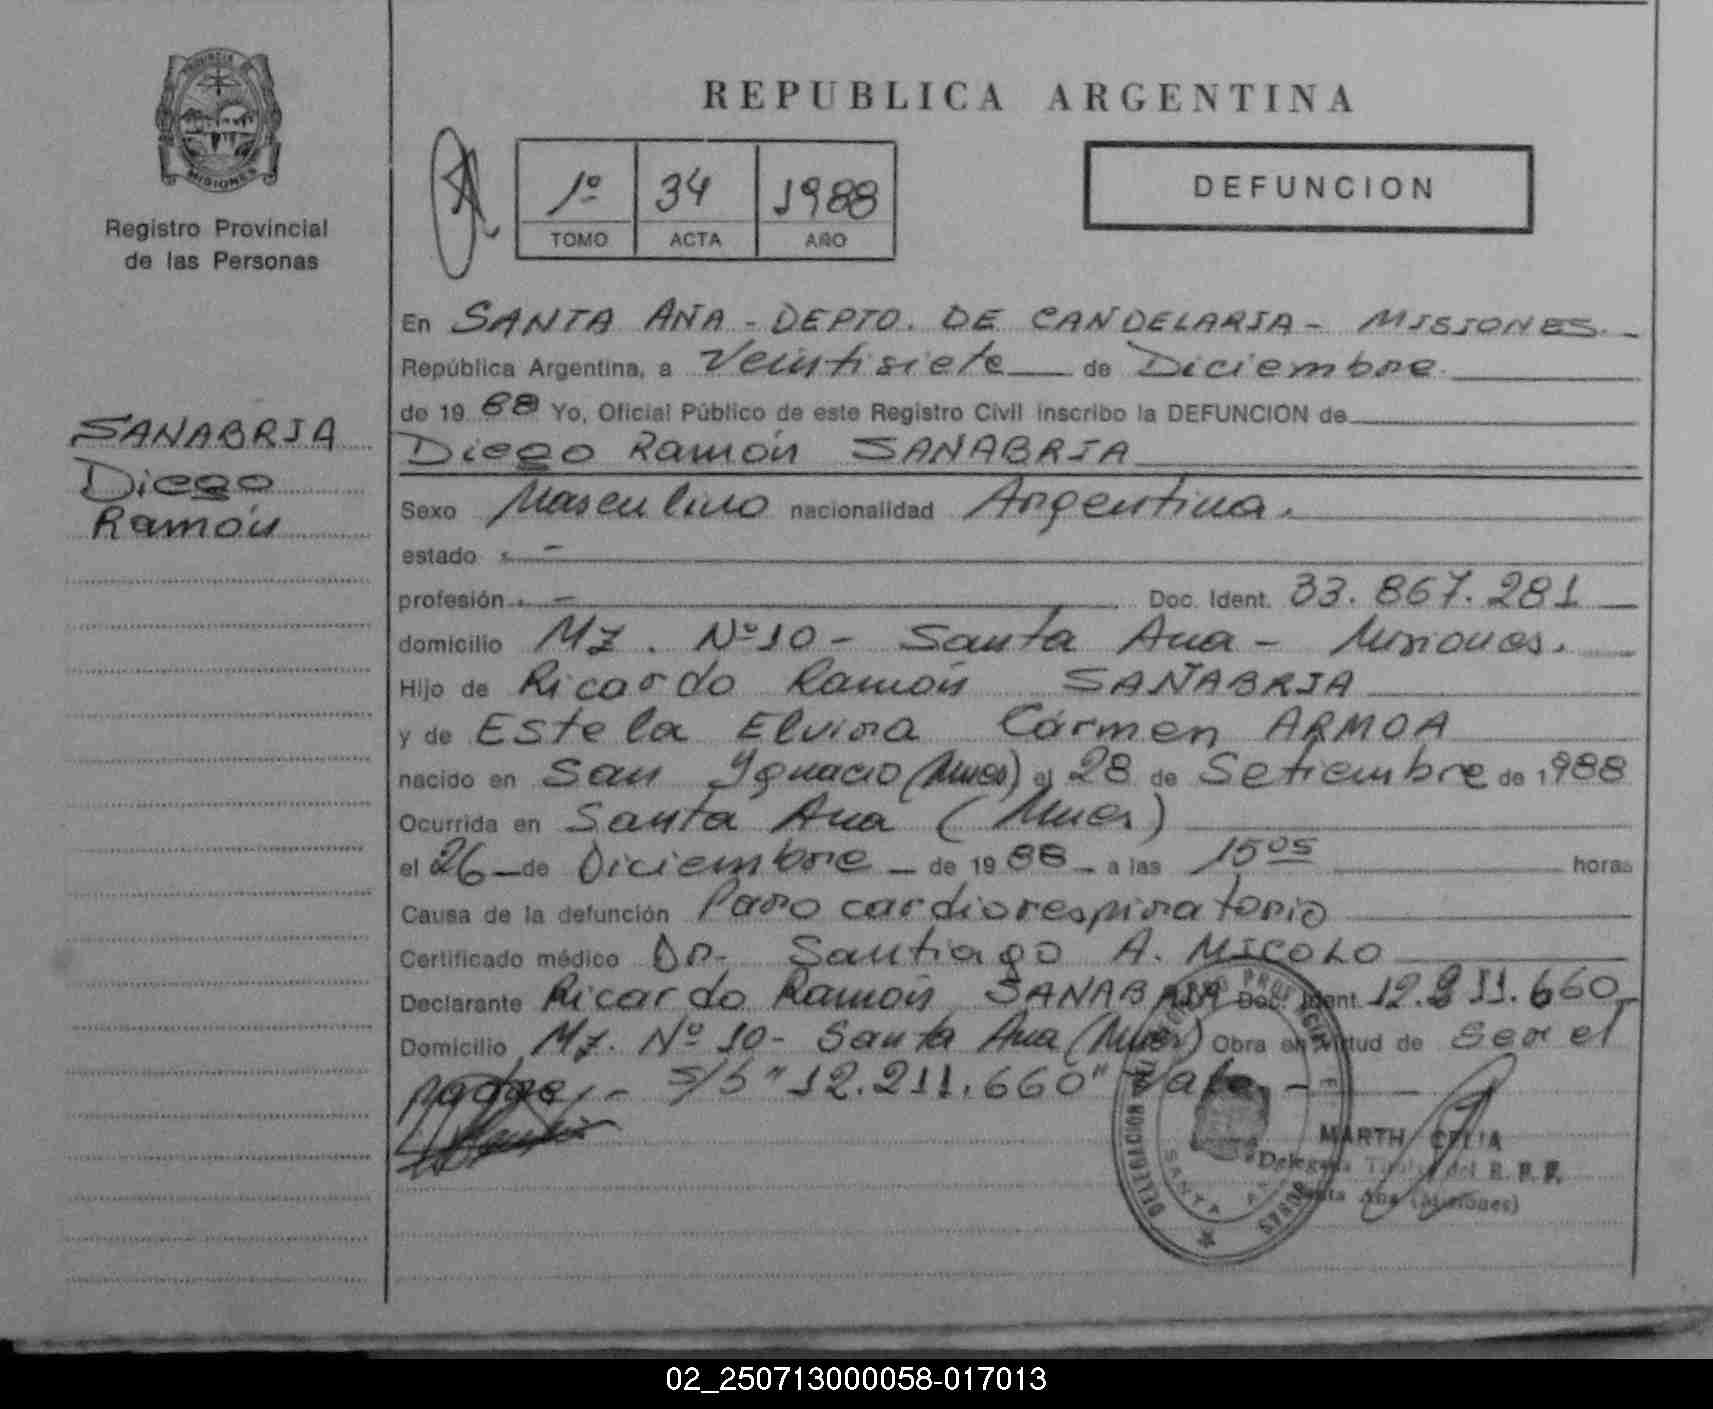 PROVINCIA DE
MISIONES
Registro Provincial
de las Personas
SANABRIA
Diego
Ramón
REPUBLICA ARGENTINA
1º 34 1988
TOMO ACTA AÑO
DEFUNCION
En SANTA ANA - DEPTO. DE CANDELARIA - MISIONES.-
República Argentina, a Veintisiete de Diciembre.
de 19 88 Yo, Oficial Público de este Registro Civil inscribo la DEFUNCION de
Diego Ramón SANABRIA
Sexo Masculino nacionalidad Argentina.
estado . -
profesión . - Doc. Ident. 33.867.281
domicilio Mz. Nº 10 - Santa Ana - Misiones.
Hijo de Ricardo Ramón SANABRIA
y de Estela Elvira Cármen ARMOA
nacido en San Ygnacio (Mnes) el 28 de Setiembre de 1988
Ocurrida en Santa Ana (Mnes)
el 26 - de Diciembre - de 19 88 - a las 15 05 horas
Causa de la defunción Paro cardiorespiratorio
Certificado médico Dr. Santiago A. MICOLO
Declarante Ricardo Ramón SANABRIA Doc. Ident. 12.211.660
Domicilio Mz. Nº 10 - Santa Ana (Mnes) Obra en virtud de ser el
padre.- S/b "12.211.660" Vale. -
DELEGACION SANTA
MARTH CELIA
Delegada Titular del R. P. P.
Santa Ana (Misiones)
02_250713000058-017013